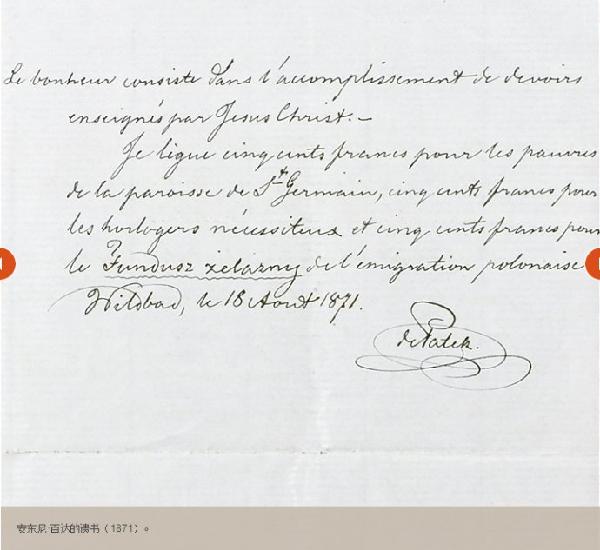 Le bonheur consiste dans l'accomplissement de devoirs
enseignés par Jesus Christ. —
Je ligue cinq cents francs pour les pauvres
de la paroisse de St Germain, cinq cents francs pour
les horlogers nécessiteux et cinq cents francs pour
le Fundusz żelazny de l'émigration polonaise
Wildbad, le 18 Aout 1871.
de Patek.
安东尼·百达的遗书（1871）。